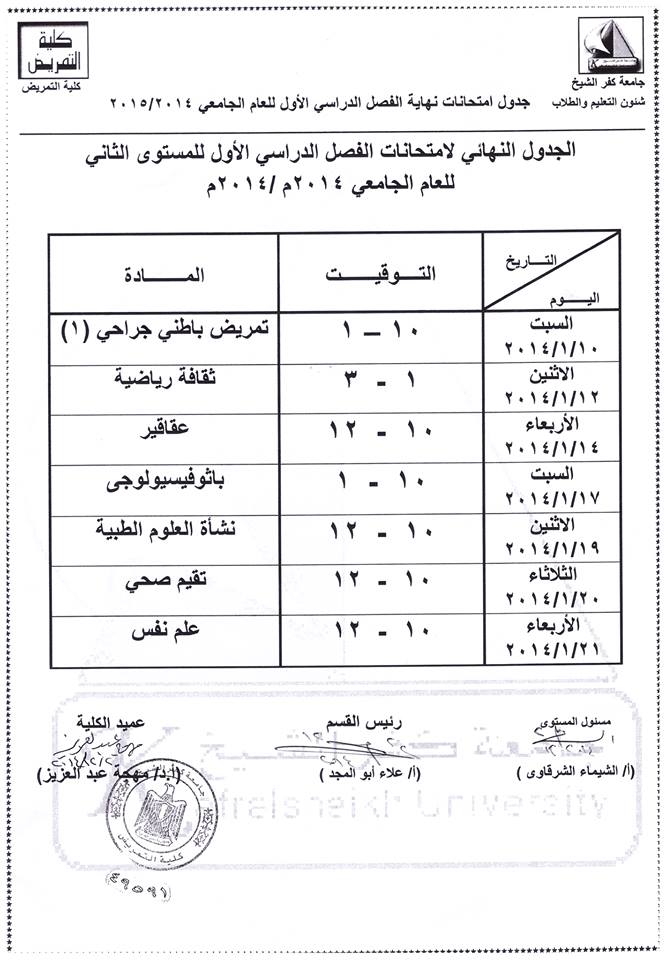 كلية
التمريض
كلية التمريض
جامعة كفر الشيخ
شئون التعليم والطلاب
جدول امتحانات نهاية الفصل الدراسي الأول للعام الجامعي ٢٠١٥/٢٠١٤
الجدول النهائي لامتحانات الفصل الدراسي الأول للمستوى الثاني
للعام الجامعي ٢٠١٤م /٢٠١٤م
التـــاريخ
اليـــوم
التـــوقيـــت
المـــــادة
السبت
٢٠١٤/١/١٠
١٠ – ١
تمريض باطني جراحي (١)
الاثنين
٢٠١٤/١/١٢
١ - ٣
ثقافة رياضية
الأربعاء
٢٠١٤/١/١٤
١٠ - ١٢
عقاقير
السبت
٢٠١٤/١/١٧
١٠ - ١
باثوفيسيولوجى
الاثنين
٢٠١٤/١/١٩
١٠ - ١٢
نشأة العلوم الطبية
الثلاثاء
٢٠١٤/١/٢٠
١٠ - ١٢
تقيم صحي
الأربعاء
٢٠١٤/١/٢١
١٠ - ١٢
علم نفس
مسئول المستوى
رئيس القسم
عميد الكلية
(أ/ الشيماء الشرقاوى )
(أ/ علاء أبو المجد )
(أ.د/ مهجة عبد العزيز)
كلية التمريض
(٤٩٥٩١)